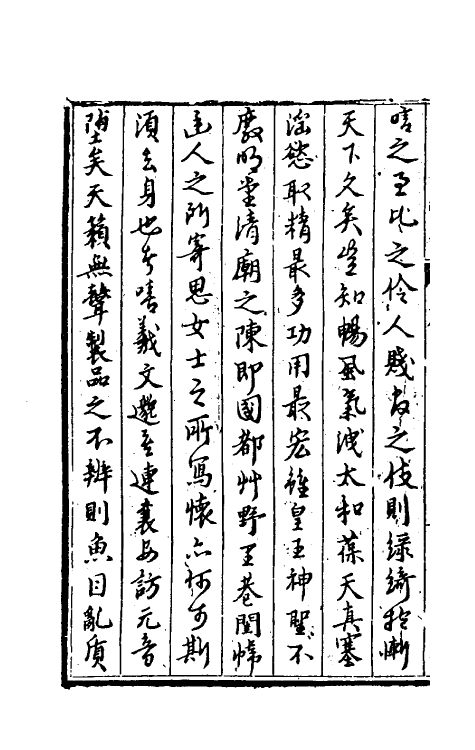 之至比之伶人賤之伎則綠綺慚
天下久矣豈知暢風氣洩太和葆天真塞
淫慾取精最多功用最宏雖皇王神聖不
廢明堂清廟之陳即國都艸野里巷閨幃
達人之所寄思女士之所寫懷亦何可斯
須去身也嗜羲文邈連襄安訪元音
墮矣天籟無聲製品之不辨則魚目亂質